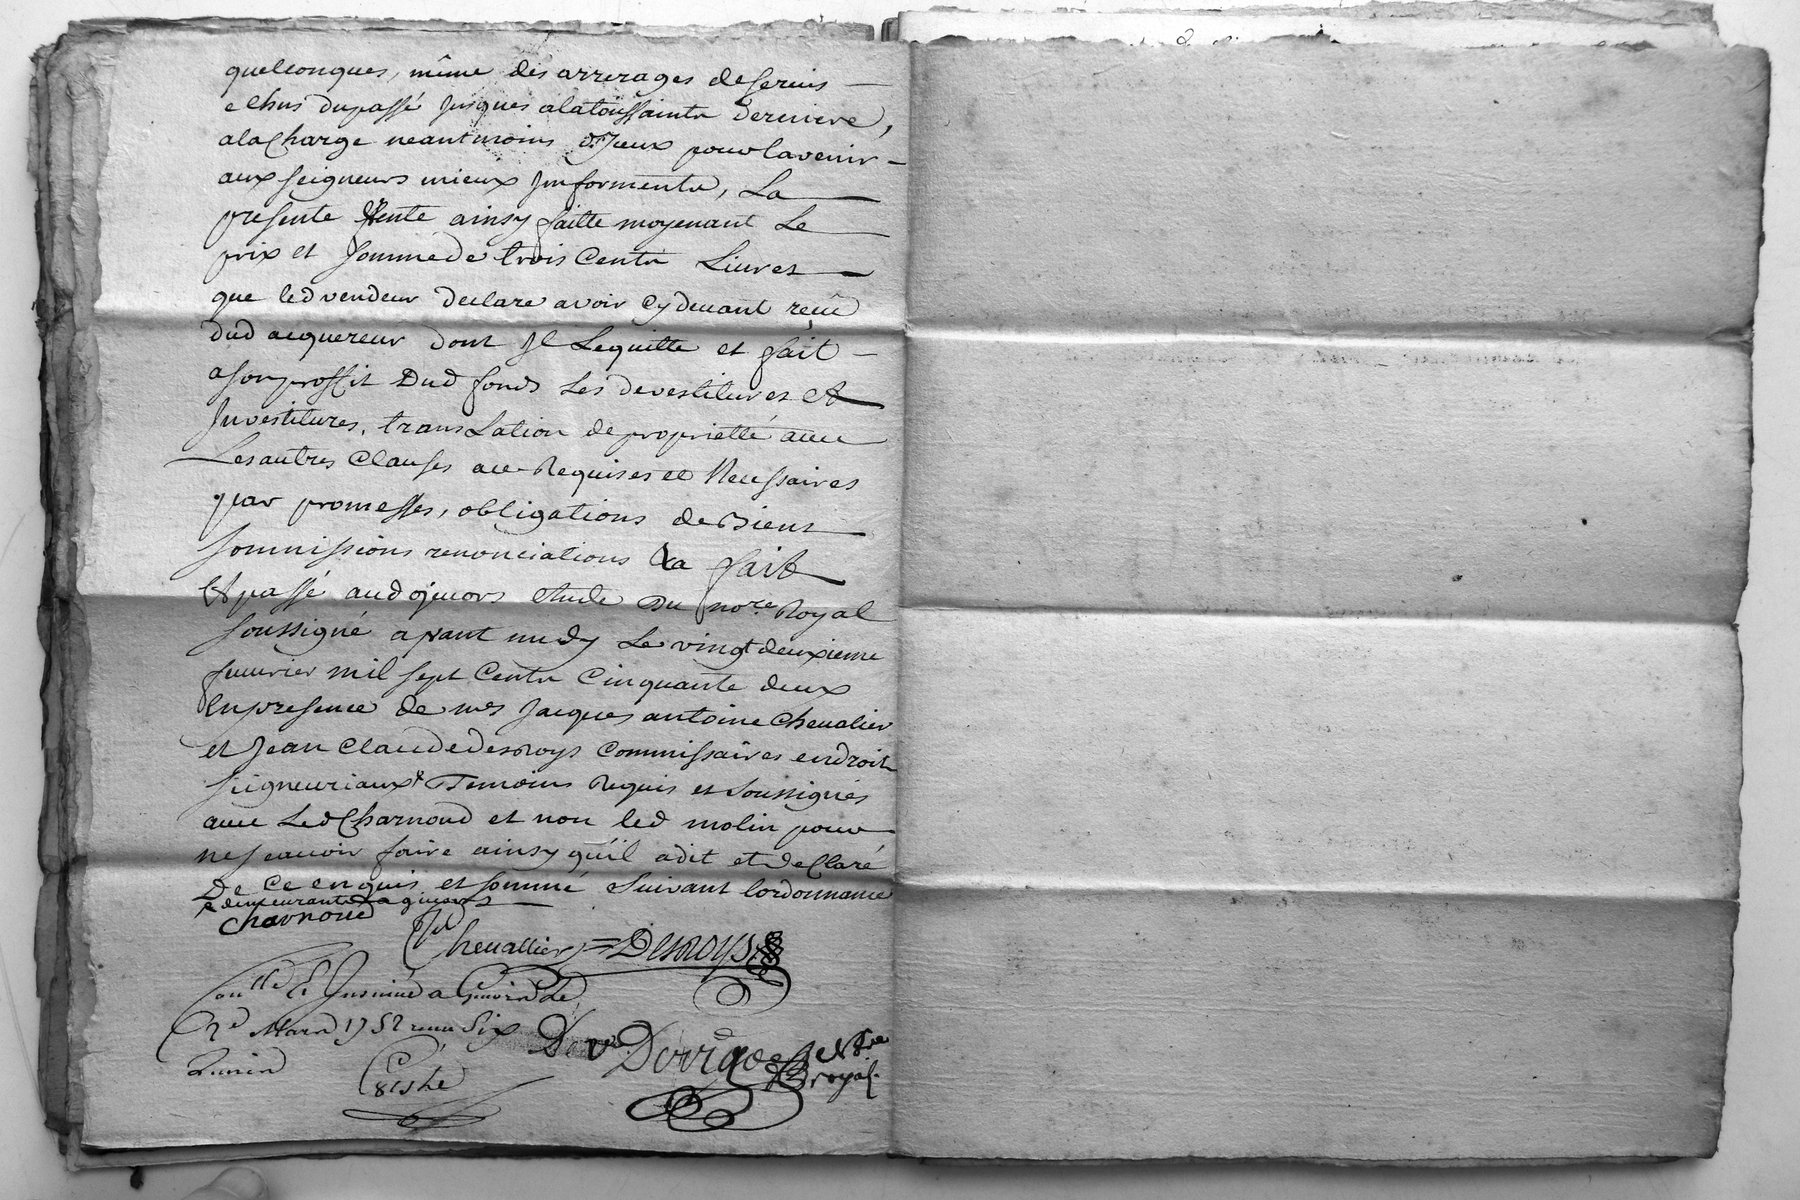 quelconques, même des arrerages de servis
echus du passé jusques a la toussaints derniere,
a la charge neantmoins d'Jceux pour lavenir
aux seigneurs mieux Jnformente, La
presente vente ainsy faitte moyenant Le
prix et somme de trois Cents Livres
que led vendeur declare avoir cy devant reçû
dud acquereur dont Jl Le quitte et fait
a son proffit Dud fonds Les devestitures et
Jnvestitures, translation de proprietté avec
Les autres Clauses ace Requises et Necessaires
par promesses, obligations de Biens
sommissions renonciations &a fait
Et passé aud 
 etude Du nore. Royal
soussigné avant midy Le vingt deuxieme
 mil sept Cents Cinquante deux
En presence de mes Jacques antoine Chevalier
et Jean Claude desroys Commissaires en droits
seigneuriaux Temoins Requis et soussignés
avec Led Charnoud et non led molin pour
ne scavoir faire ainsy qu'il a dit et declaré
De ce enquis et sommé suivant lordonnance
demeurants a
Charnoud
Chevallier Desroys
Conllé & Jnsinué a le
2e Mars 1752 receu six

Dervigo Nre
royal